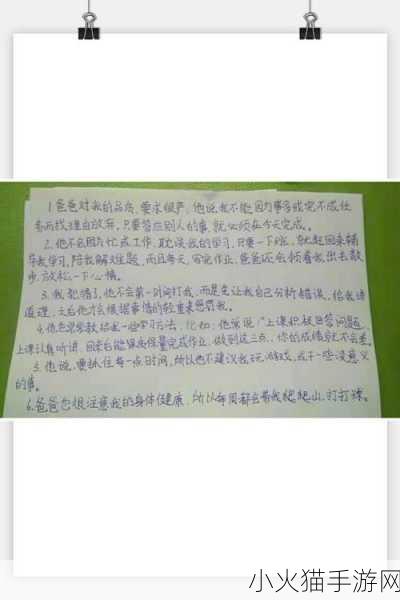 1.爸爸对我的品质,要求很严,他说我不能因为事多或完不成任
务而找理由放弃。只要答应别人的事,就必须在今天完成。
2.他不会因为忙或工作,耽误我的学习,只要一下班,就赶回来辅
导我学习,陪我解难题,而且每天,写完作业,爸爸还会领着我出去散
步,放松一下心情。
3.我犯错了,他不会第一时间打我,而是先让我自己分析错误,给我讲
道理,之后他才会根据事情的轻重来惩罚我。
4.他还常常教给我一些学习方法,比如:他常说:"上课积极回答问题,
上课认真听讲,回来后能保质保量完成作业,做到这三点,你的成绩就不会差。
5.他说,要抓住每一点时间,所以他不建议我玩游戏,或干一些没意义
的事。
6.爸爸也很注意我的身体健康,所以每周都会带我爬爬山,打打球。
小火猫手游网